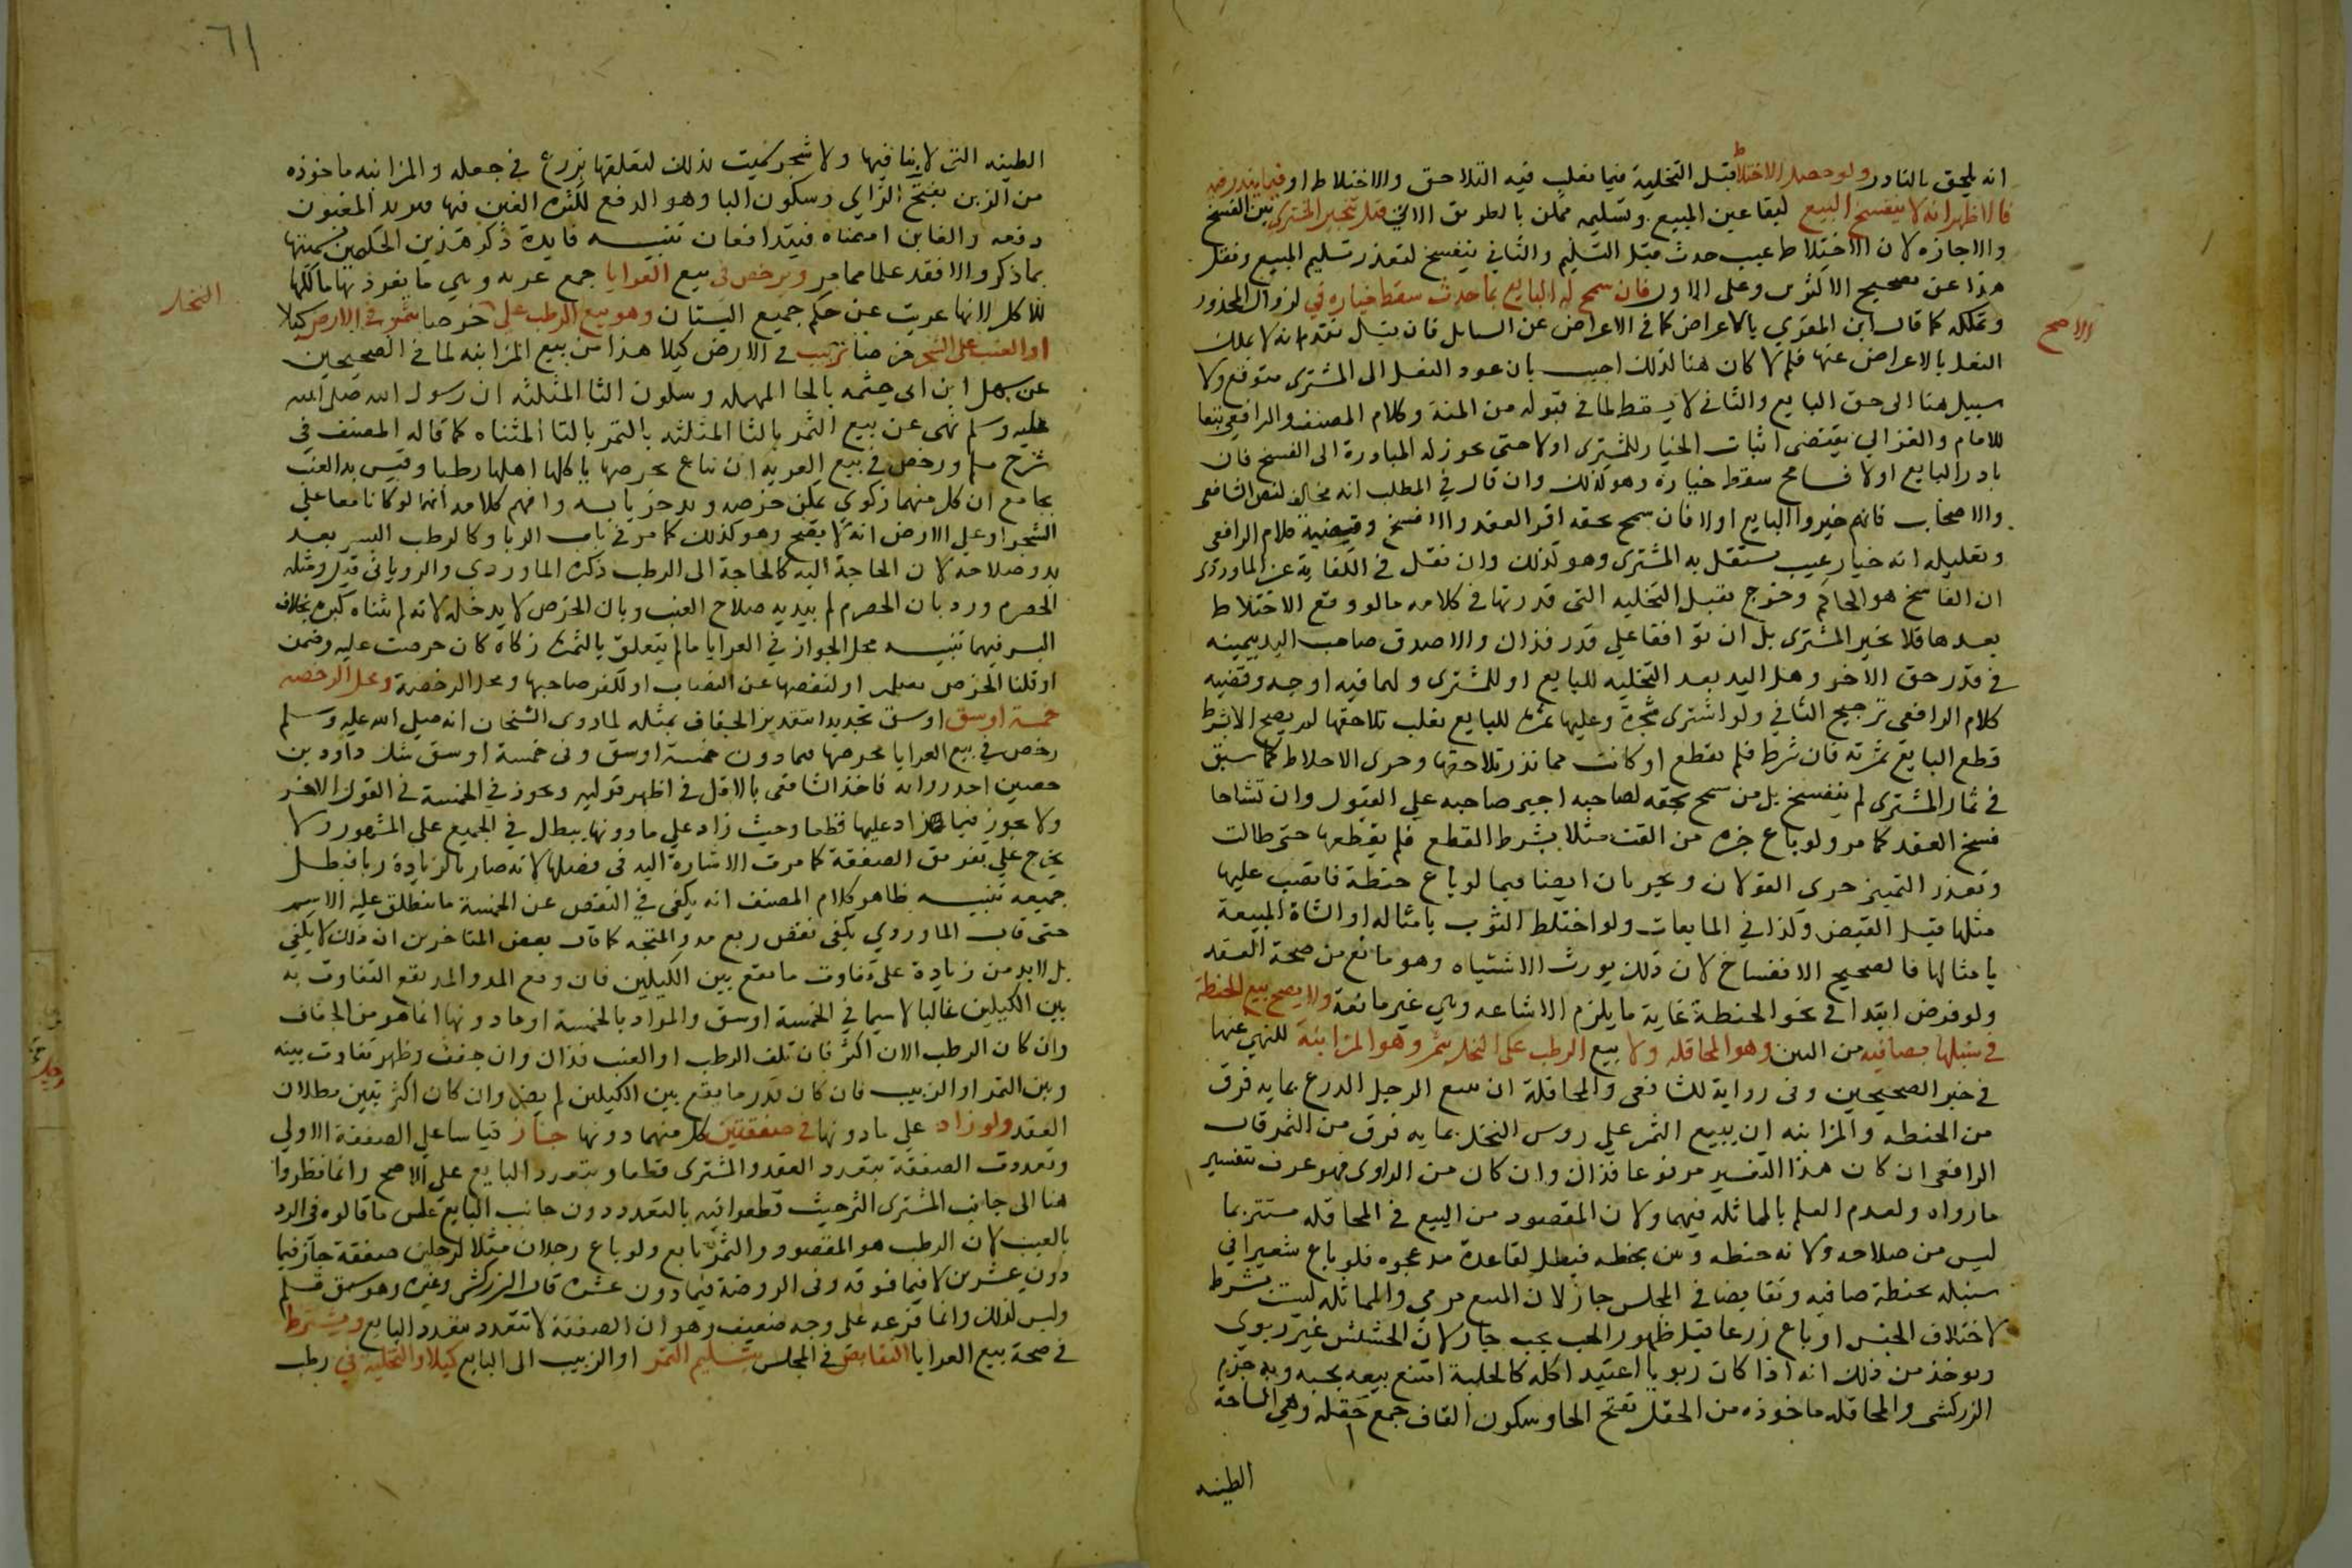 انه يلحق بالنادر ولو حصل الاختلاط قبل التخلية فيما يغلب فيه التلاحق والاختلاط او فيما يندر فيه
فالاظهر انه لا ينفسخ البيع لبقا عين المبيع وتسليمه ممكن بالطريق الاتي قبل يتخير المشتري بين الفسخ
والاجازه لان الاختلاط عيب حدث قبل التسليم والثاني ينفسخ لتعذر تسليم المبيع ونقل
هذا عن تصحيح الاكثرين وعلى الاول فان سمح له البايع بما حدث سقط خياره في لزوال المحذور
الاصح
وتملكه كما قال ابن المقري بالاعراض كما في الاعراض عن السنابل فان قيل تقدم انه لا يملك
النعل بالاعراض عنها فلم لا كان هنا لذلك اجيب بان عود النعل الى المشترى متوقع ولا
سبيل هنا الى حق البايع والثاني لا يسقط لما في قبوله من المنة وكلام المصنف والرافعي تبعا
للامام والغزالي يقتضى اثبات الخيار للمشترى اولا حتى يجوز له المبادرة الى الفسخ فان
بادر البايع اولا فسامح سقط خياره وهو كذلك وان قال في المطلب انه مخالف لنص الشافعي
والاصحاب فانهم خيروا البايع اولا فان سمح بحقه اقر العقد والا فسخ وقضية كلام الرافعي
وتعليله انه خيار عيب مستقل به المشترى وهو كذلك وان نقل في الكفاية عن الماوردى
ان الفاسخ هو الحاكم وخرج بقبل التخليه التى قدرتها في كلامه مالو وقع الاختلاط
بعدها فلا يخير المشترى بل ان توافقا على قدر فذاك والا صدق صاحب اليد بيمينه
في قدر حق الاخر وهل اليد بعد التخليه للبايع او للمشترى ولهما فيه اوجه وقضيه
كلام الرافعي ترجيح الثاني ولو اشترى شجرة وعليها ثمرة للبايع يغلب تلاحقها لم يصح الا بشرط
قطع البايع ثمرته فان شرط فلم يقطع او كانت مما تندر تلاحقها وجرى الاختلاط كما سبق
في ثمار المشترى لم ينفسخ بل من سمح بحقه لصاحبه اجبر صاحبه على القبول وان تشاحا
فسخ العقد كما مر ولو باع جزه من القت مثلا بشرط القطع فلم يقطعها حتى طالت
وتعذر التمييز جرى القولان ويجريان ايضا فيما لو باع حنطة فانصب عليها
مثلها قبل القبض وكذا في المايعات ولو اختلط الثوب بامثاله او الشاة المبيعة
بامثالها فالصحيح الانفساخ لان ذلك يورث الاشتباه وهو مانع من صحة العقد
ولو فرض ابتدا في نحو الحنطة غاية ما يلزم الاشاعه وهي غير مانعة ولا يصح بيع الحنطة
في سنبلها بصافيه من التبن وهو المحاقله ولا بيع الرطب على النخل بتمر وهو المزابنة للنهي عنها
في خبر الصحيحين وفى رواية للشافعي والمحاقلة ان يبيع الرجل الزرع بمايه فرق
من الحنطه والمزابنه ان يبيع الثمر على روس النخل بمايه فرق من التمر قال
الرافعي ان كان هذا التفسير مرفوعا فذاك وان كان من الراوى فهو عرف بتفسير
ما رواه ولعدم العلم بالمماثله فيهما ولان المقصود من البيع في المحاقله مستتر بما
ليس من صلاحه ولانه حنطه وتبن بحنطه فيبطل لقاعدة مد عجوه فلو باع شعيرا في
سنبله بحنطة صافيه وتقابضا في المجلس جاز لان المبيع مرئي والمماثله ليست بشرط
لاختلاف الجنس او باع زرعا قبل ظهور الحب بحب جاز لان الحشيش غير ربوي
ويوخذ من ذلك انه اذا كان ربويا اعتيد اكله كالحلبة امتنع بيعه بحبه وبه جزم
الزركشى والمحاقله ماخوذه من الحقل بفتح الحا وسكون القاف جمع حقله وهي الساحة
الطيبه
٦١
الطيبه التى لا بنا فيها ولا شجر سميت بذلك لتعلقها بزرع في حقله والمزابنه ماخوذه
من الزبن بفتح الزاي وسكون البا وهو الدفع لكثرة الغبن فيها فيريد المغبون
دفعه والغابن امضاه فيتدافعان تنبيــه فايدة ذكر هذين الحكمين تسميتها
بما ذكر والا فقد علما مما مر ويرخص في بيع العرايا جمع عريه وهي ما يفرد بها مالكها
للاكل لانها عريت عن حكم جميع البستان وهو بيع الرطب على خرصا بتمر في الارض كيلا
النخل
او العنب على الشجر خرصا بزبيب في الارض كيلا هذا من بيع المزابنه لما في الصحيحين
عن سهل ابن ابى حثمه بالحا المهمله وسكون الثا المثلثه ان رسول الله صلى الله
عليه وسلم نهى عن بيع الثمر بالثا المثلثه بالتمر بالتا المثناه كما قاله المصنف في
شرح مسلم ورخص في بيع العريه ان تباع بخرصها ياكلها اهلها رطبا وقيس به العنب
بجامع ان كل منهما زكوي يمكن خرصه ويدخر يابسه وافهم كلامه انهما لو كانا معا على
الشجر او على الارض انه لا يصح وهو كذلك كما مر في باب الربا وكالرطب البسر بعد
بدو صلاحه لان الحاجة اليه كالحاجة الى الرطب ذكره الماوردي والروياني قيل ومثله
الحصرم ورد بان الحصرم لم يبد به صلاح العنب وبان الخرص لا يدخله لانه لم يتناه كبره بخلاف
البسر فيهما تنبيــه محل الجواز في العرايا ما لم يتعلق بالثمرة زكاة كان خرصت عليه وضمن
او قلنا الخرص تضمين او لنقصها عن النصاب او لكفر صاحبها ومحل الرخصة ومحل الرخصه
خمسة اوسق اوسق تحديدا بتقدير الجفاف بمثله لما روى الشيخان انه صلى الله عليه وسلم
رخص في بيع العرايا بخرصها فيما دون خمسة اوسق وفى خمسة اوسق شك داود بن
حصين احد رواته فاخذ الشافعى بالاقل في اظهر قوليه ويجوز في الخمسة في القول الاخر
ولا يجوز فيما زاد عليها قطعا وحيث زاد على ما دونها يبطل في الجميع على المشهور ولا
يخرج على تفريق الصفقة كما مرت الاشارة اليه في فصلها لانه صار بالزيادة ربا فبطل
جميعه تنبيــه ظاهر كلام المصنف انه يكفى في النقص عن الخمسة ما ينطلق عليه الاسم
حتى قال الماوردي يكفى نقص ربع مد والمتجه كما قال بعض المتاخرين ان ذلك لا يكفي
بل لابد من زيادة على تفاوت ما يقع بين الكيلين فان ربع المد والمد يقع التفاوت به
بين الكيلين غالبا لا سيما في الخمسة اوسق والمراد بالخمسة او ما دونها انما هو من الجفاف
وان كان الرطب الان اكثر فان تلف الرطب او العنب فذاك وان جفف وظهر تفاوت بينه
وبين التمر او الزبيب فان كان قدر ما يقع بين الكيلين لم يضر وان كان اكثر تبين بطلان
العقد ولو زاد على ما دونها في صفقتين كل منهما دونها جاز قياسا على الصفقة الاولى
وتعددت الصفقة بتعدد العقد والمشترى قطعا وبتعدد البايع على الاصح وانما نظروا
هنا الى جانب المشترى اكثر حيث قطعوا فيه بالتعدد دون جانب البايع عكس ما قالوه في الرد
بالعيب لان الرطب هو المقصود والتمر تابع ولو باع رجلان مثلا لرجلين صفقة جاز فيما
دون عشرين لا فيما فوقه وفى الروضة فيما دون عشره قال الزركشى وغيره وهو سبق قلم
وليس كذلك وانما فرعه على وجه ضعيف وهو ان الصفقة لا تتعدد بتعدد البايع ويشترط
في صحة بيع العرايا التقابض في المجلس بتسليم التمر او الزبيب الى البايع كيلا والتخلية في رطب